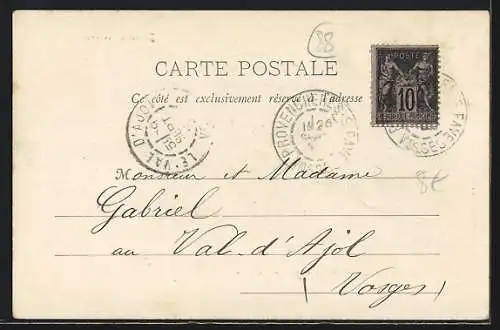 88
CARTE POSTALE
Ce côté est exclusivement réservé à l'adresse
POSTE
10
LE VAL D'AJOL
8€
Monsieur et Madame
Gabriel
au Val-d'Ajol
(Vosges)